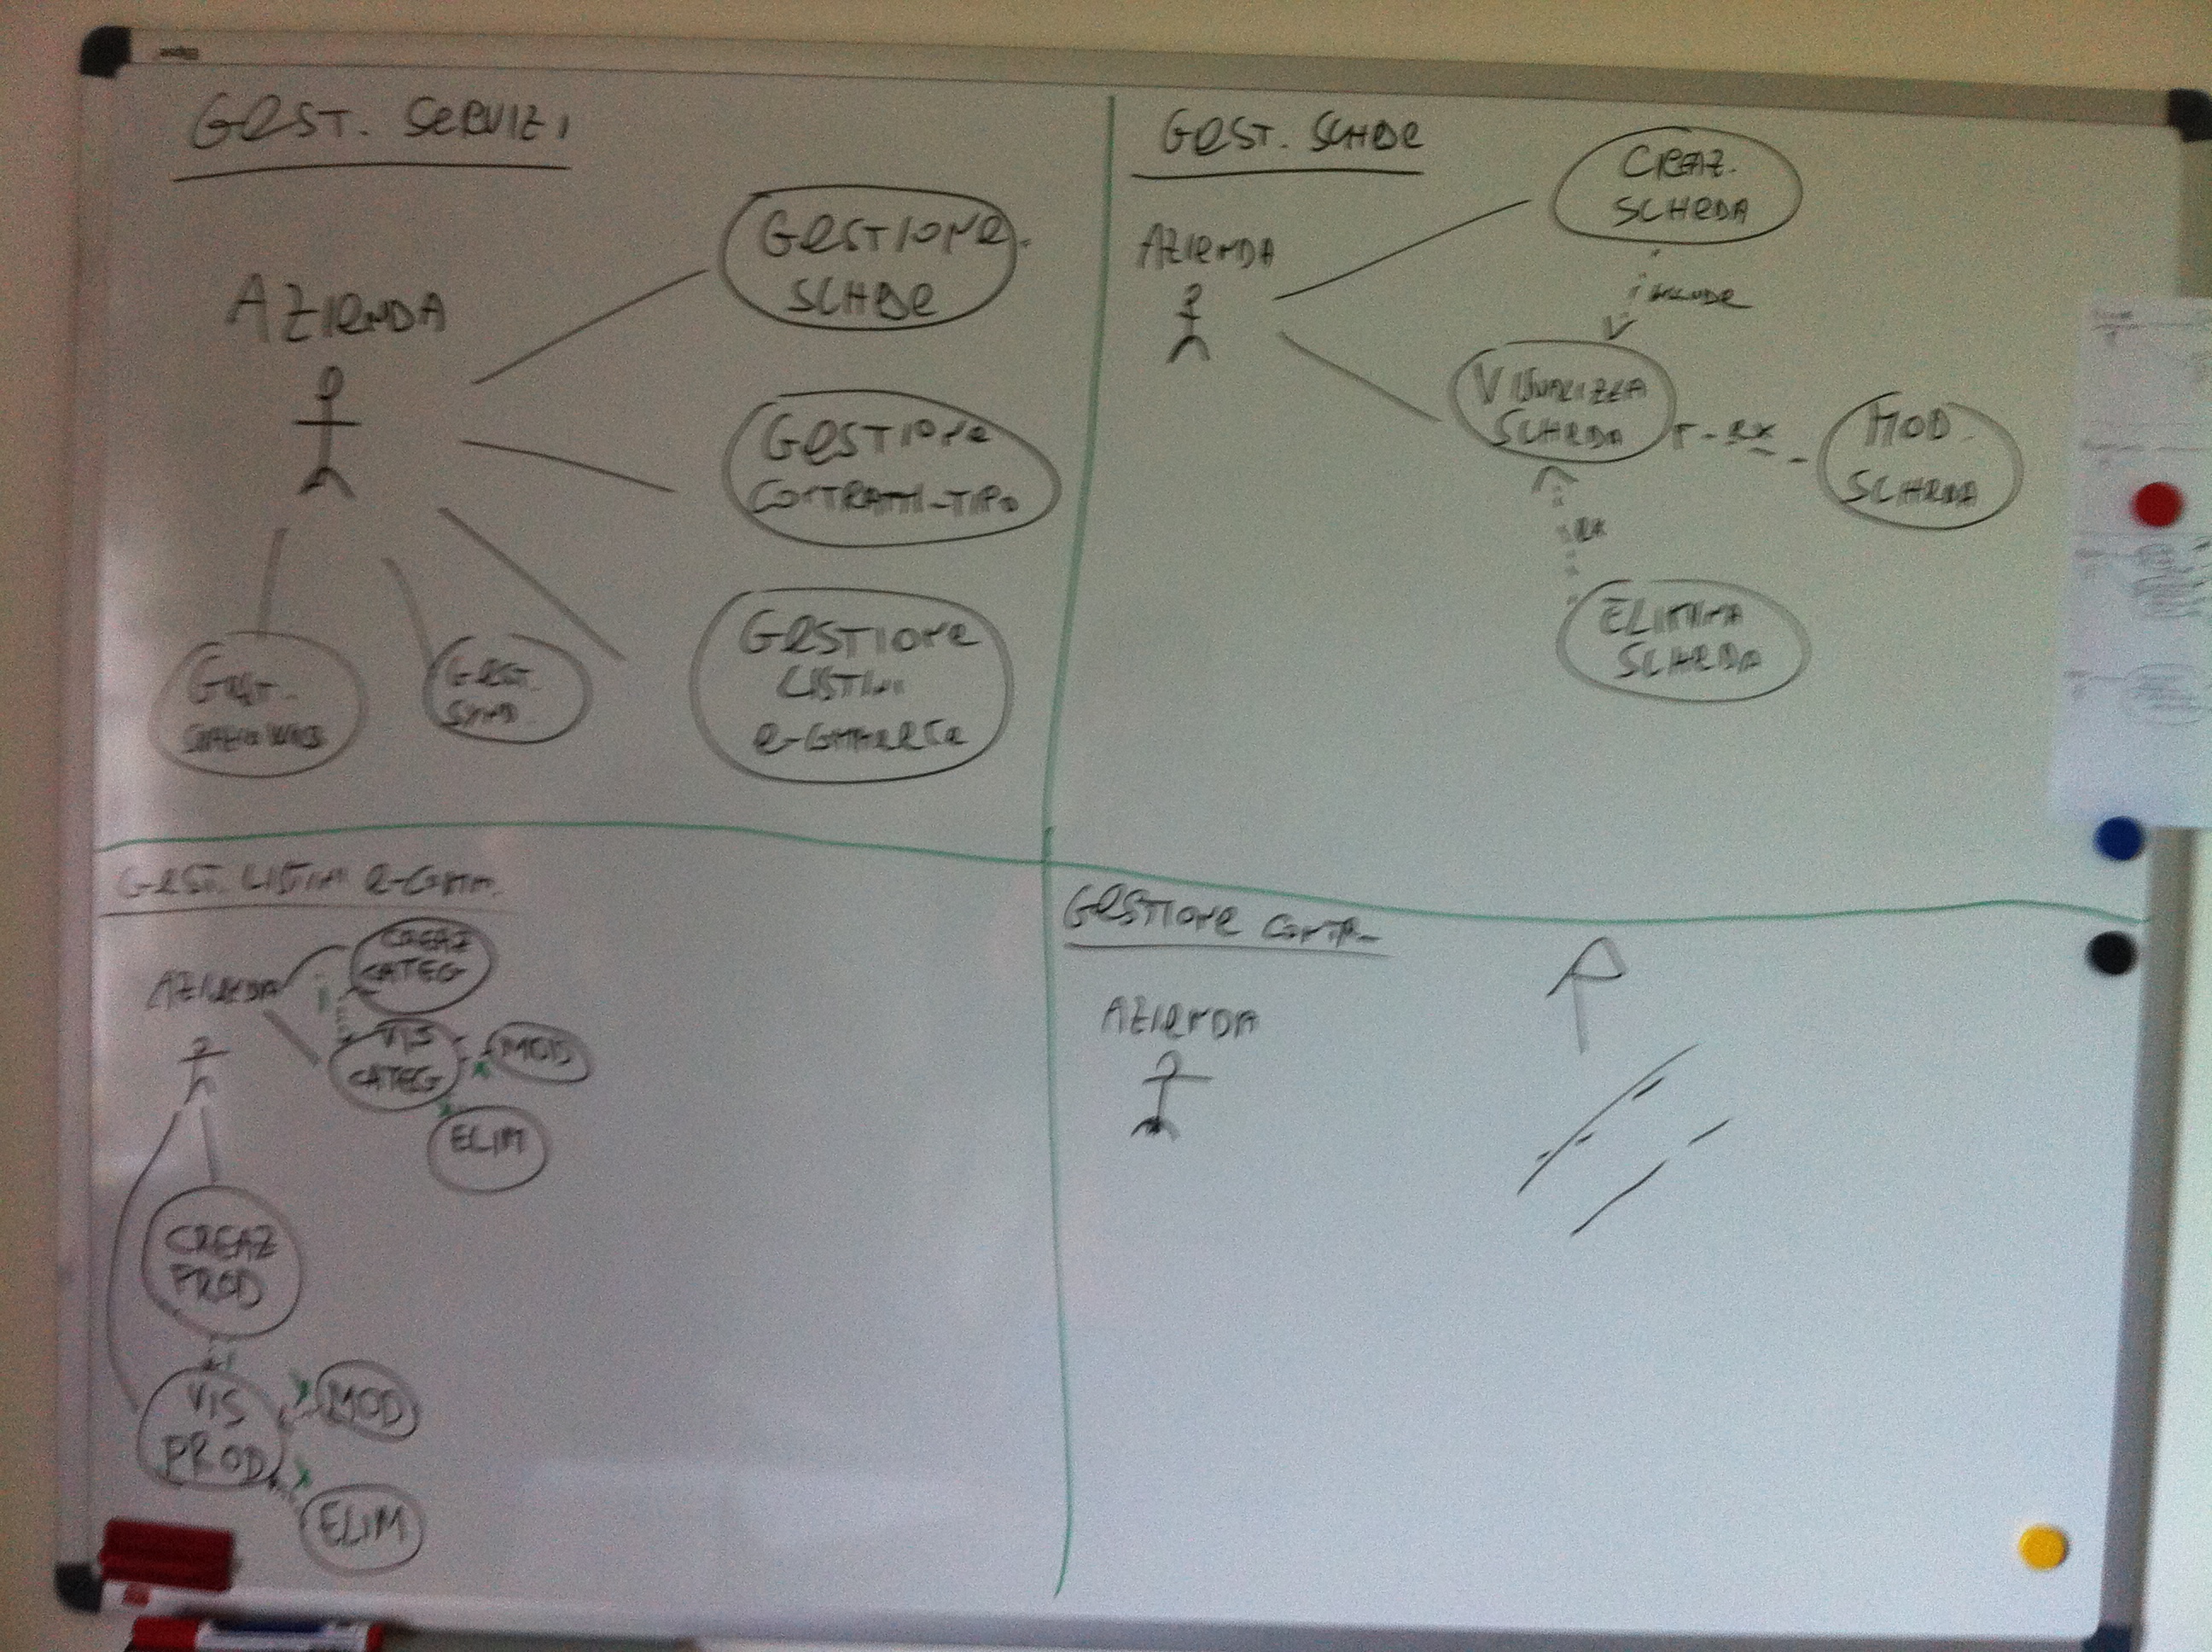 GEST. SERVIZI
AZIENDA
GESTIONE
SCHEDE
GESTIONE
CONTRATTI-TIPO
GESTIONE
LISTINI
E-COMMERCE
GEST.
GEST.
GEST. SCHEDE
AZIENDA
CREAZ.
SCHEDA
INCLUDE
VISUALIZZA
SCHEDA
EX
MOD.
SCHEDA
EX
ELIMINA
SCHEDA
GEST. LISTINI E-COMM.
AZIENDA
CREAZ
CATEG
VIS
CATEG
MOD
ELIM
CREAZ
PROD
VIS
PROD
MOD
ELIM
GESTIONE CONTR.
AZIENDA